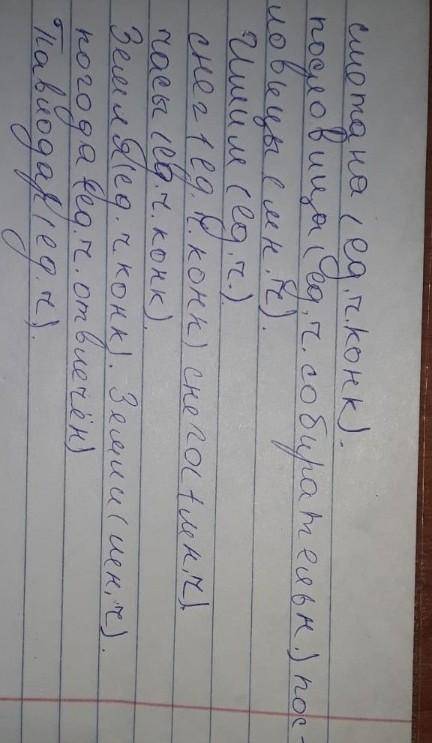 сметана (ед.ч.конк).
пословица (ед.ч.собирательн.) пос-
ловицы (мн.ч).
Ишим (ед.ч.)
снег (ед.ч.конк) снегос (мн.ч)
часы (ед.ч.конк).
Земля (ед.ч конк). Земли (мн.ч).
погода (ед.ч.отвлечён)
Павлодар (ед.ч).